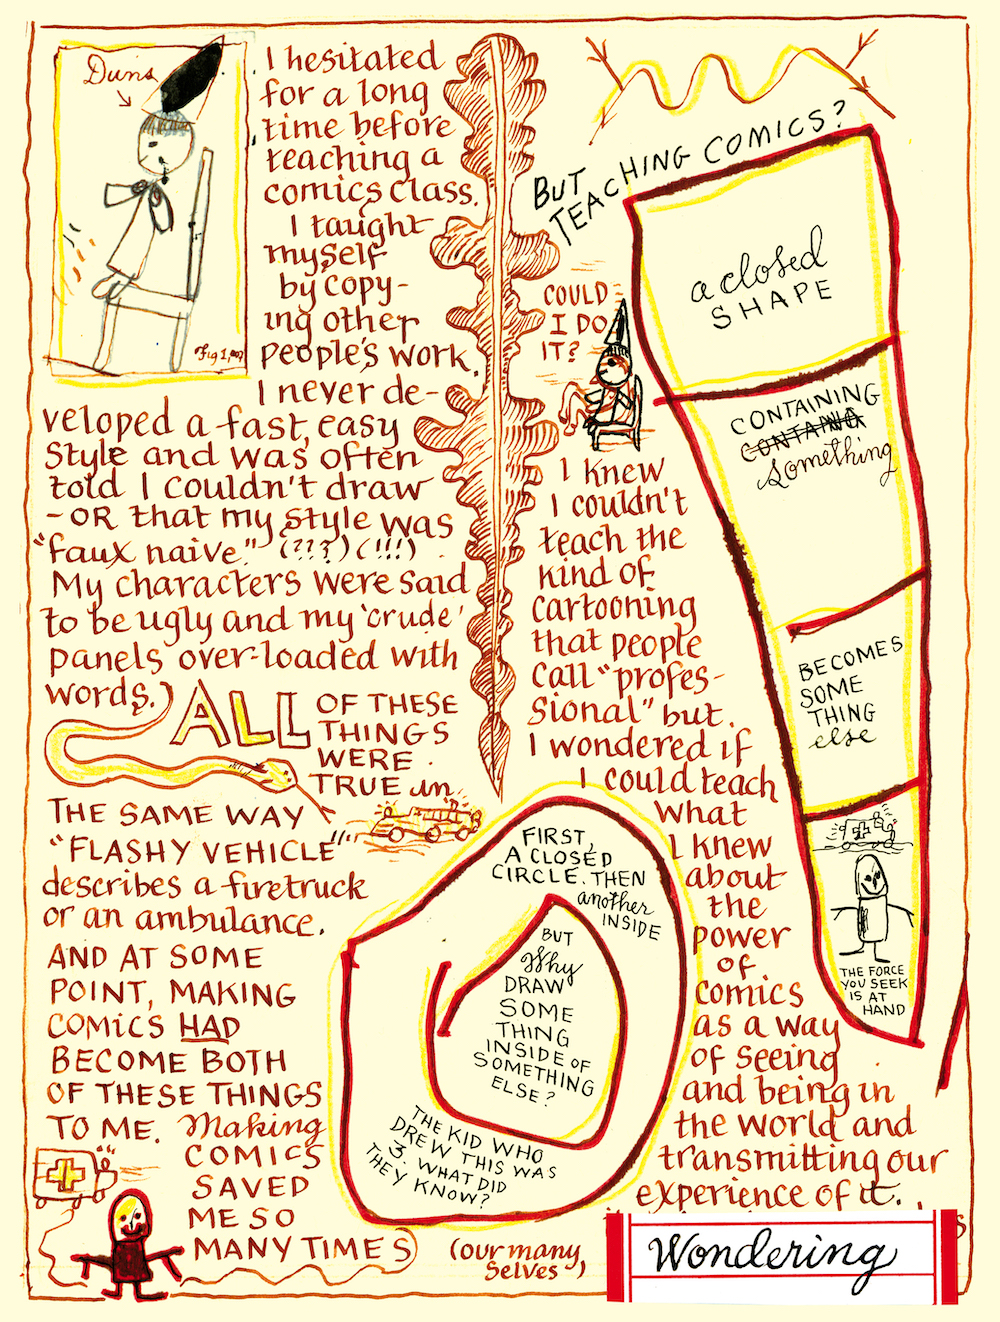 Duns
Fig 1,
I hesitated
for a long
time before
teaching a
comics class.
I taught
myself
by copy-
ing other
people's work.
I never de-
veloped a fast, easy
style and was often
told I couldn't draw
-OR that my style was
"faux naive." (???) (!!!)
My characters were said
to be ugly and my 'crude'
panels over-loaded with
words.)
ALL OF THESE
THINGS
WERE
TRUE in
THE SAME WAY
"FLASHY VEHICLE"
describes a firetruck
or an ambulance.
AND AT SOME
POINT, MAKING
COMICS HAD
BECOME BOTH
OF THESE THINGS
TO ME. Making
COMICS
SAVED
ME SO
MANY TIMES
(our many
selves)
BUT
TEACHING COMICS?
COULD
I DO
IT?
I knew
I couldn't
teach the
kind of
cartooning
that people
call "profes-
sional" but
I wondered if
I could teach
what
I knew
about
the
power
of
comics
as a way
of seeing
and being in
the world and
transmitting our
experience of it.
a closed
SHAPE
CONTAINING
something
BECOMES
SOME
THING
else
THE FORCE
YOU SEEK
IS AT
HAND
FIRST,
A CLOSED
CIRCLE. THEN
another
INSIDE
BUT
Why
DRAW
SOME
THING
INSIDE OF
SOMETHING
ELSE?
THE KID WHO
DREW THIS WAS
3. WHAT DID
THEY KNOW?
Wondering